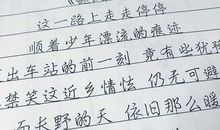 这一路上走走停停
顺着少年漂流的痕迹
出车站的前一刻 竟有些犹
禁笑这近乡情怯 仍无可避
长野的天 依旧那么暖